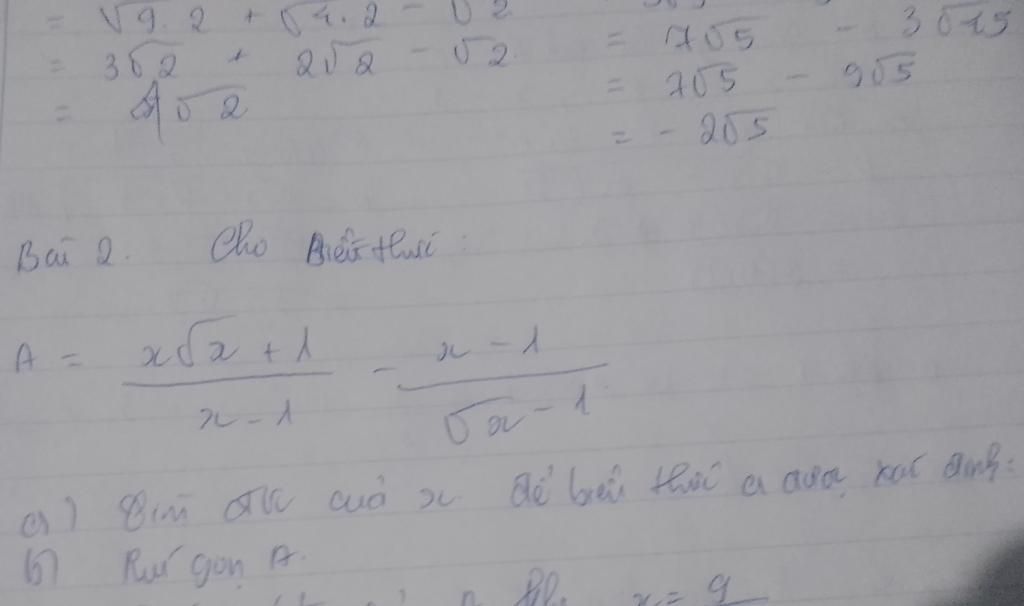 = √9.2 + √4.2 - √2
= 3√2 + 2√2 - √2
= 4√2
= 7√5 - 3√45
= 7√5 - 9√5
= - 2√5
Bài 2. Cho Biểu thức :
A = (x√x + 1)/(x - 1) - (x - 1)/(√x - 1)
a) Tìm đk của x để biểu thức a được xác định:
b) Rút gọn A.
x = 9